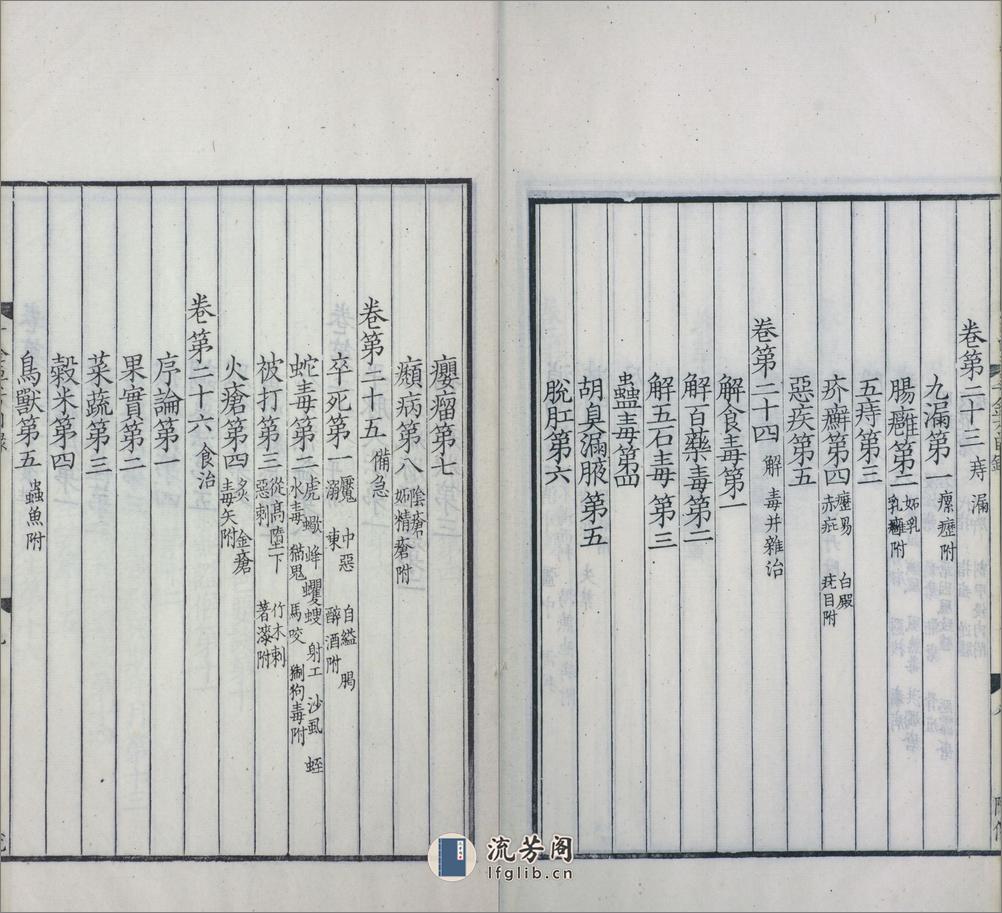 卷第二十三 痔漏
九漏第一 瘰癧附
腸癰第二 妬乳 乳癰附
五痔第三
疥癬第四 癧昜 白癜 赤疵 疣目附
惡疾第五
卷第二十四 解毒并雜治
解食毒第一
解百藥毒第二
解五石毒第三
蠱毒第四
胡臭漏腋第五
脫肛第六
癭瘤第七
㿗病第八 陰瘡 妬精瘡附
卷第二十五 備急
卒死第一 魘 中惡 自縊 暍 溺 凍 醉酒附
蛇毒第二 虎 蠍 蜂 蠼螋 射工 沙虱 蛭 水毒 猫鬼 馬咬 猘狗毒附
被打第三 從高墮下 竹木刺 惡刺 著漆附
火瘡第四 灸 金瘡 毒矢附
卷第二十六 食治
序論第一
果實第二
菜蔬第三
穀米第四
鳥獸第五 蟲魚附
流芳阁
lfglib.cn